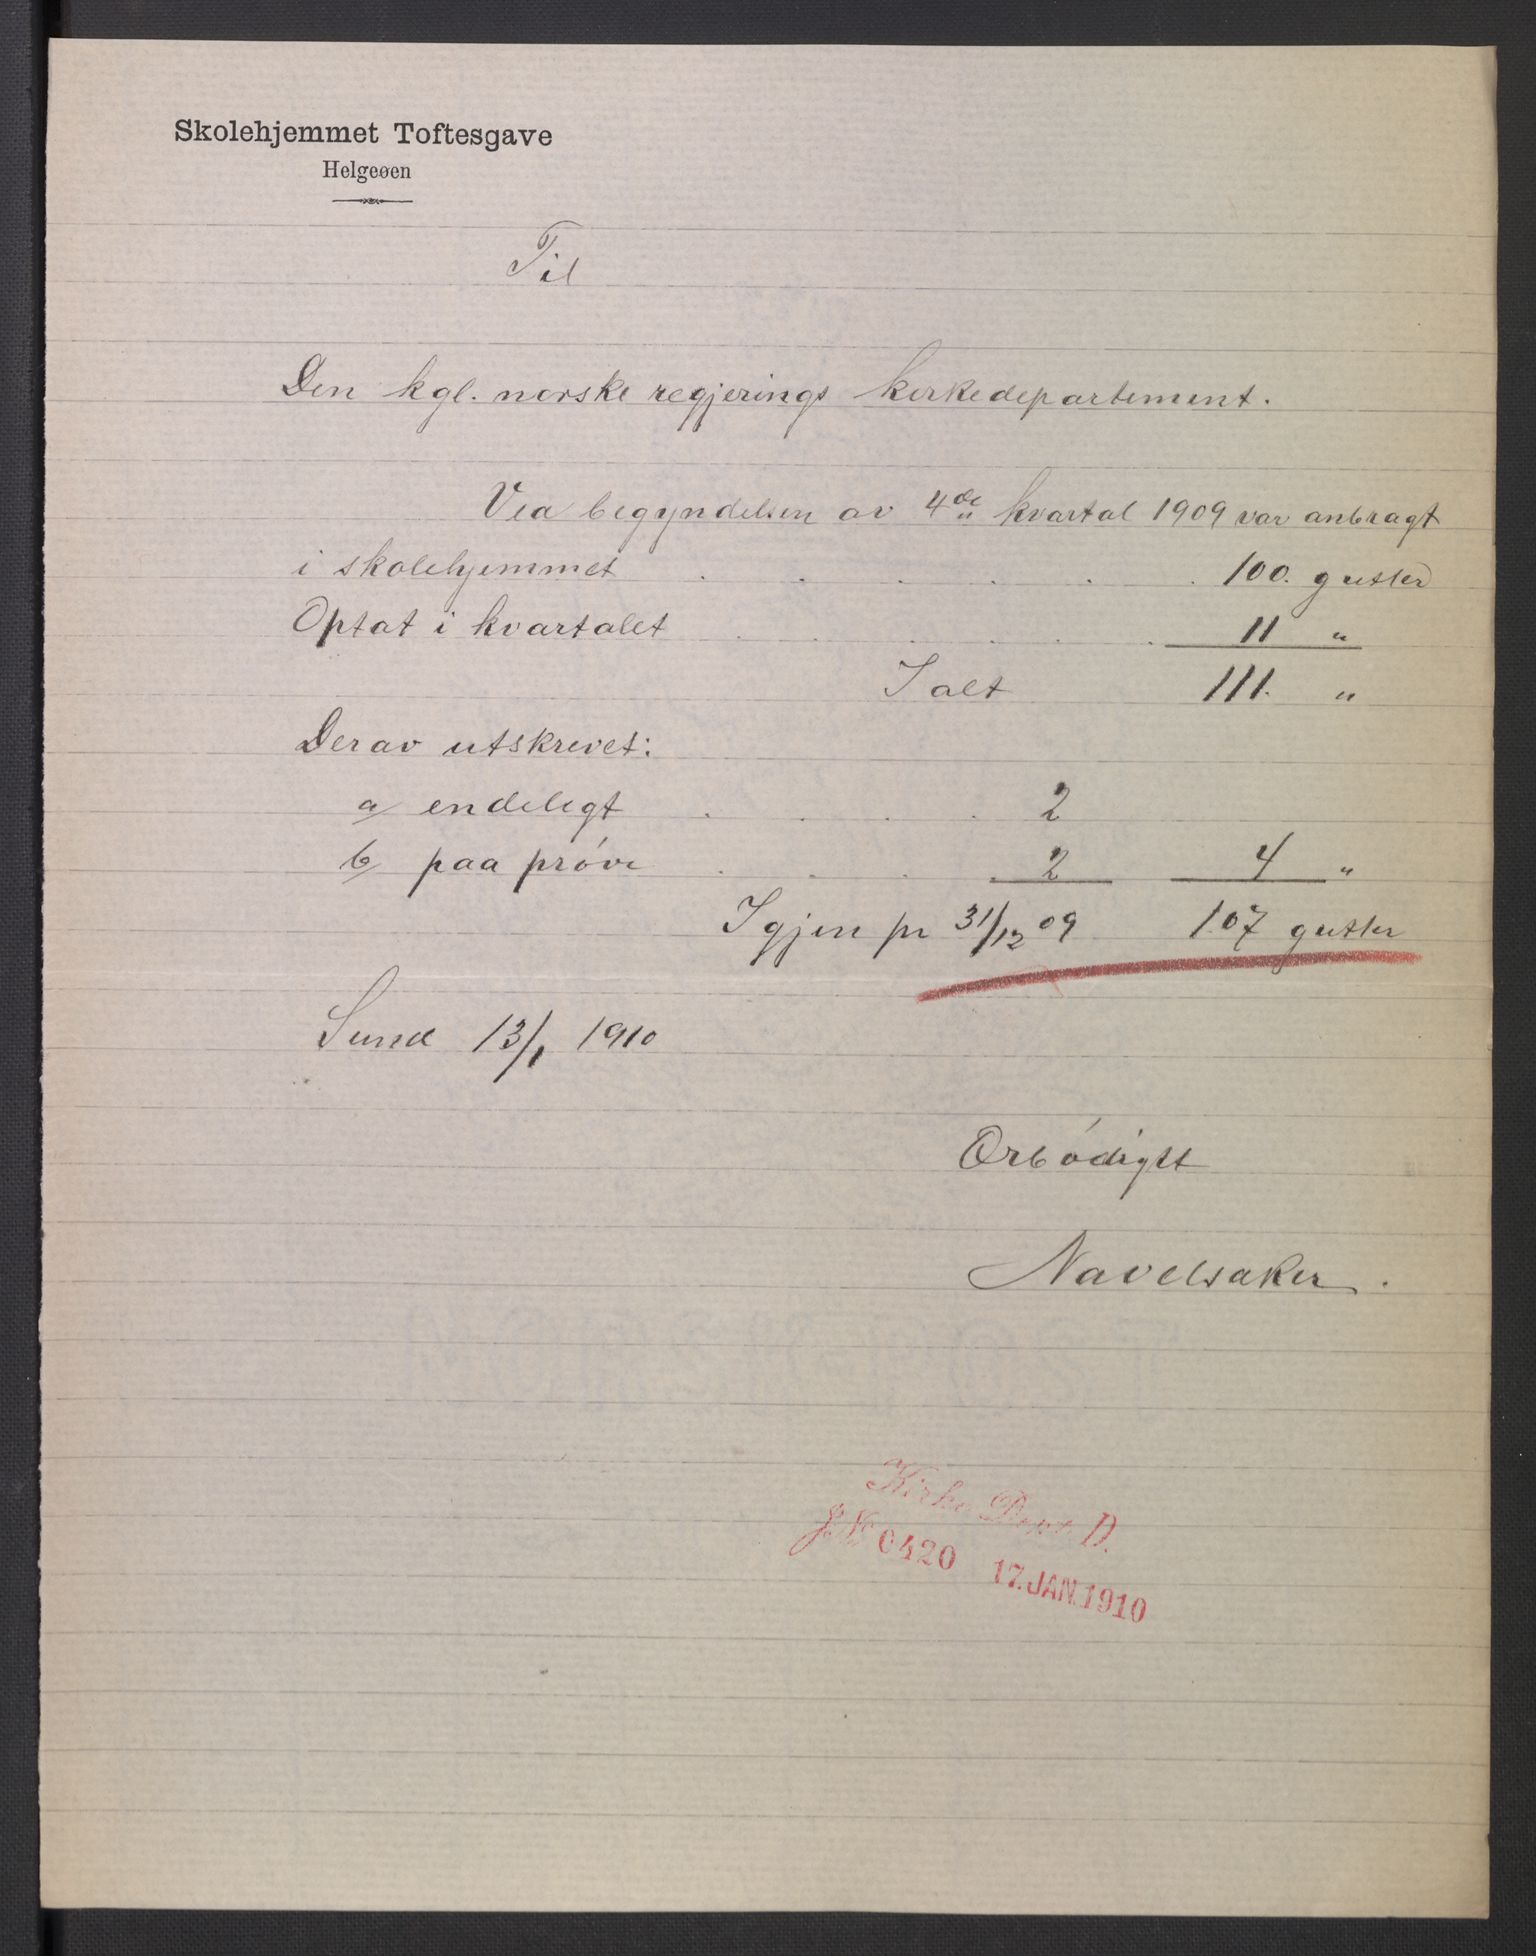 Skolehjemmet Toftesgave
Helgeøen
Til
Den kgl. norske regjerings kirkedepartement.
Ved begyndelsen av 4de kvartal 1909 var anbragt
i skolehjemmet . . . . . . 100. gutter
Optat i kvartalet . . . . . 11 "
I alt 111. "
Derav utskrevet:
a/ endeligt . . . . 2
b/ paa prøve . . . . 2 4 "
Igjen pr 31/12 09 107 gutter
Sund 13/1 1910
Ørbødigst
Navelsaker.
Kirke Dept. D.
J. № 0420 17. JAN. 1910